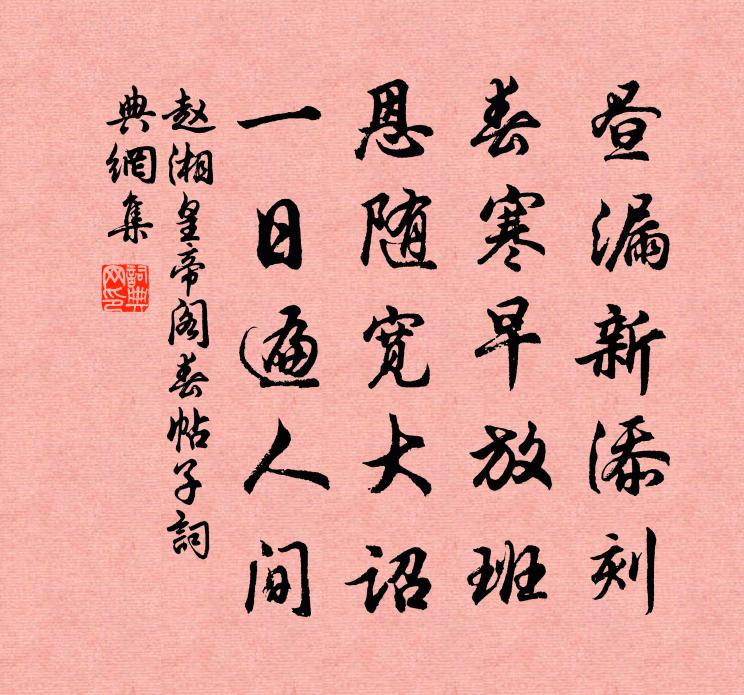 昼漏新添刻
春寒早放班
恩随宽大诏
一日遍人间
赵湘皇帝阁春帖子詞
典網集
詞典网印